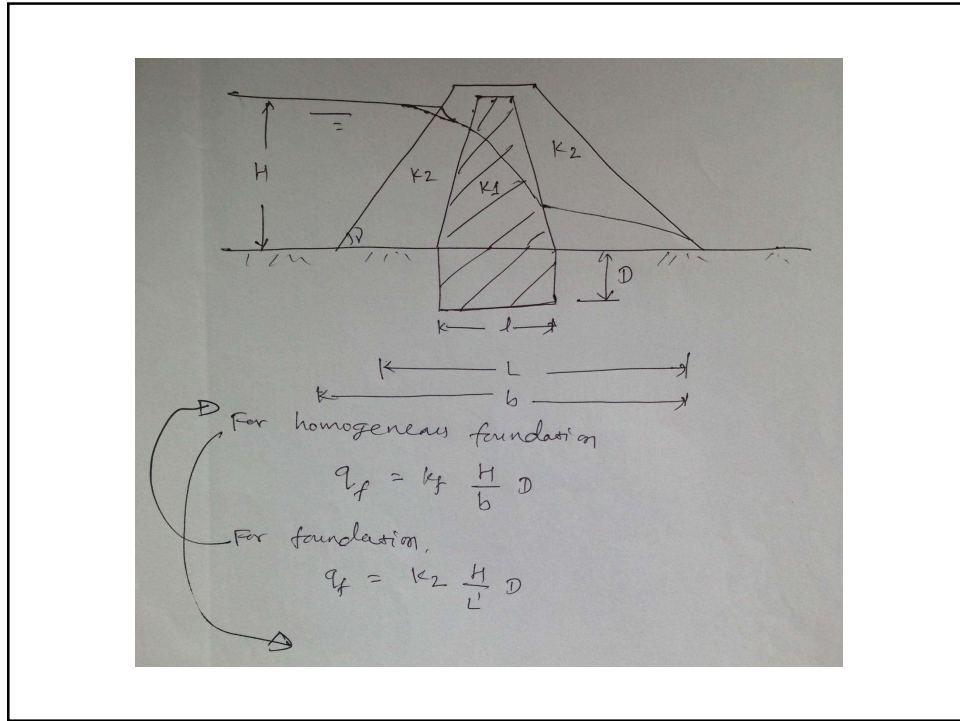 H
K2
K1
K2
D
l
L
b
For homogeneous foundation
q_f = k_f H/b D
For foundation,
q_f = K2 H/L' D